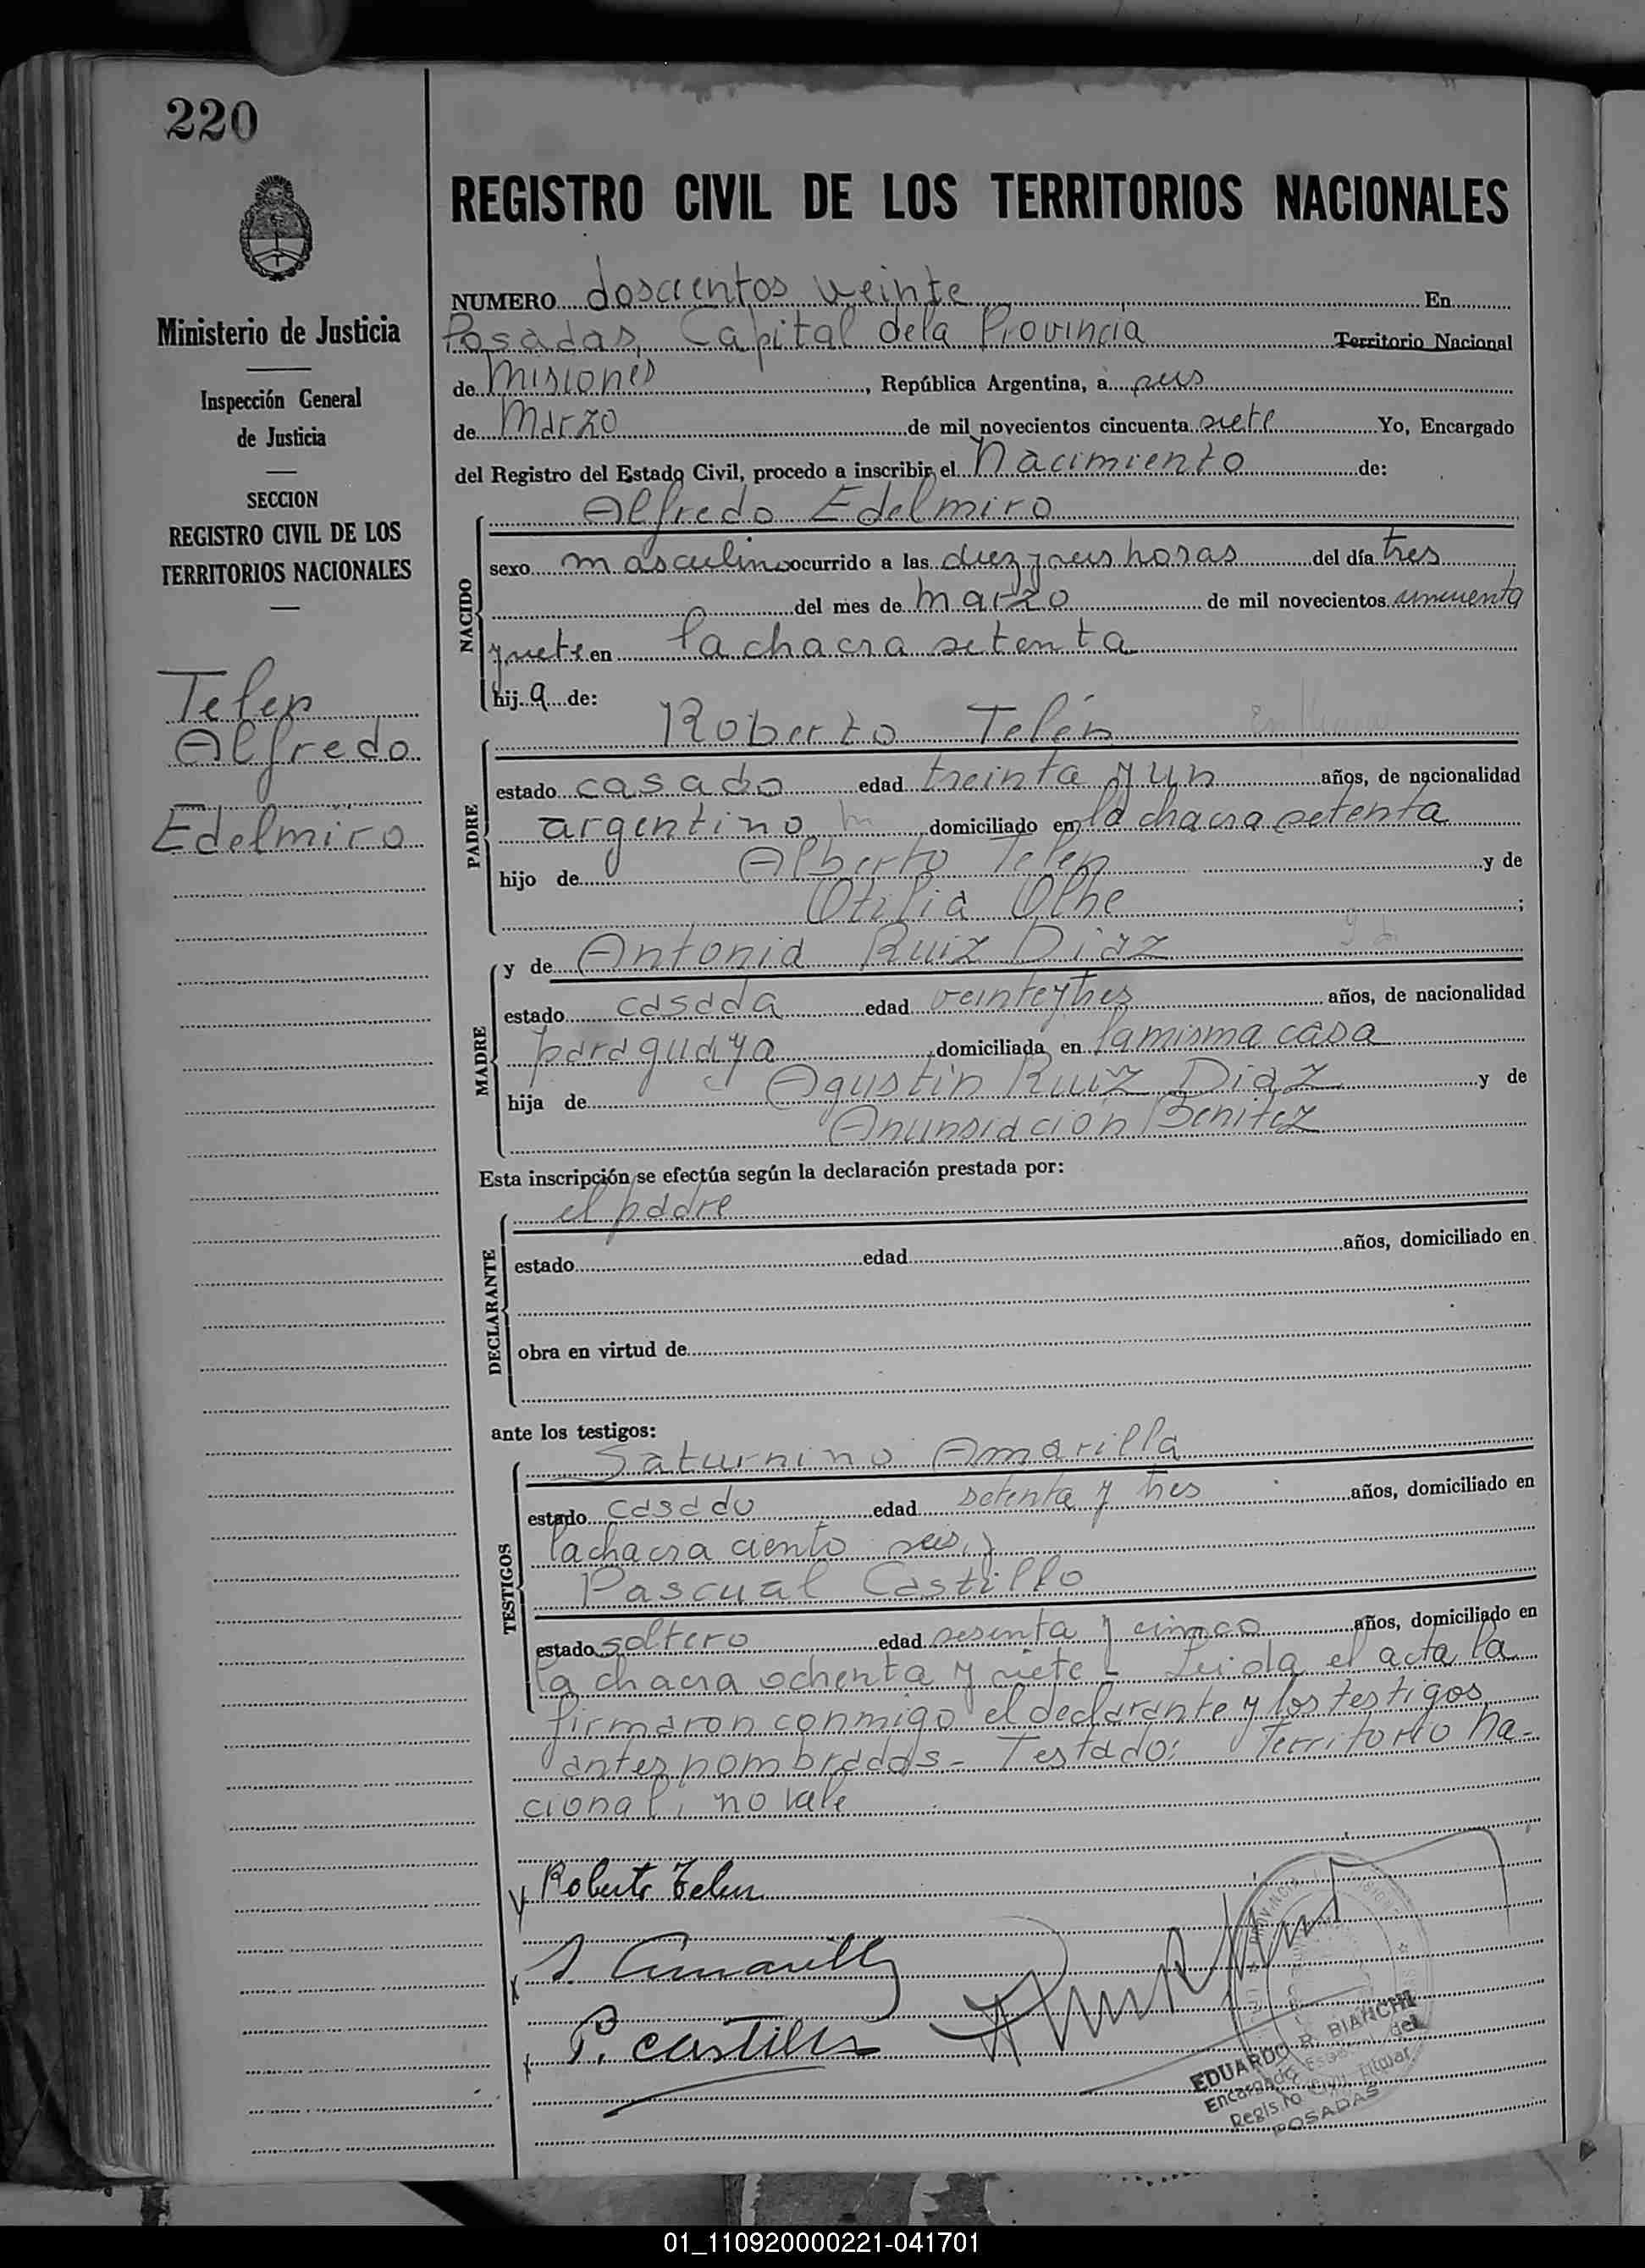 220
Ministerio de Justicia
Inspección General
de Justicia
SECCION
REGISTRO CIVIL DE LOS
TERRITORIOS NACIONALES
Telen
Alfredo
Edelmiro
REGISTRO CIVIL DE LOS TERRITORIOS NACIONALES
NUMERO doscientos veinte En
Posadas, Capital de la Provincia Territorio Nacional
de Misiones, República Argentina, a seis
de Marzo de mil novecientos cincuenta siete Yo, Encargado
del Registro del Estado Civil, procedo a inscribir el Nacimiento de:
Alfredo Edelmiro
NACIDO
sexo masculino ocurrido a las diez y seis horas del día tres
del mes de marzo de mil novecientos cincuenta
y siete en la chacra setenta
hij o de:
Roberto Telén
PADRE
estado casado edad treinta y un años, de nacionalidad
argentino, domiciliado en la chacra setenta
hijo de Alberto Telen y de
Otilia Olhe;
y de Antonia Ruiz Diaz
MADRE
estado casada edad veinte y tres años, de nacionalidad
paraguaya, domiciliada en la misma casa
hija de Agustin Ruiz Diaz y de
Anunsiacion Benitez
Esta inscripción se efectúa según la declaración prestada por:
el padre
DECLARANTE
estado edad años, domiciliado en
obra en virtud de
ante los testigos:
Saturnino Amarilla
TESTIGOS
estado casado edad setenta y tres años, domiciliado en
la chacra ciento seis, y
Pascual Castillo
estado soltero edad sesenta y cinco años, domiciliado en
la chacra ochenta y siete - Leida el acta la
firmaron conmigo el declarante y los testigos
antes nombrados - Testado: Territorio Na-
cional, no vale
Roberto Telen
S. Amarilla
P. Castillo
EDUARDO R. BIANCHI
Encargado Escal. del
Regis.ro Civil Titular
POSADAS
01_110920000221-041701